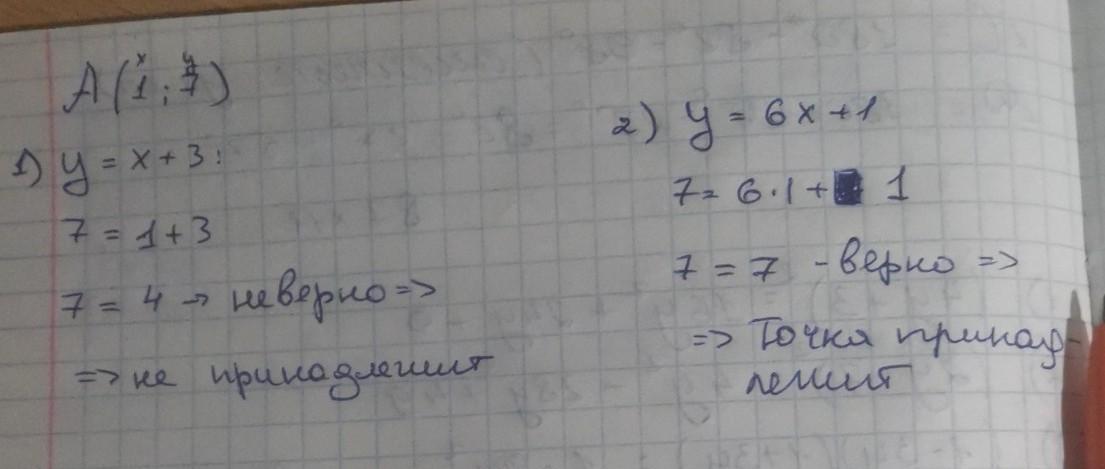 x y
A(1; 7)
1) y = x + 3:
7 = 1 + 3
7 = 4 → неверно =>
=> не принадлежит
2) y = 6x + 1
7 = 6 · 1 + 1
7 = 7 - верно =>
=> Точка принад-
лежит